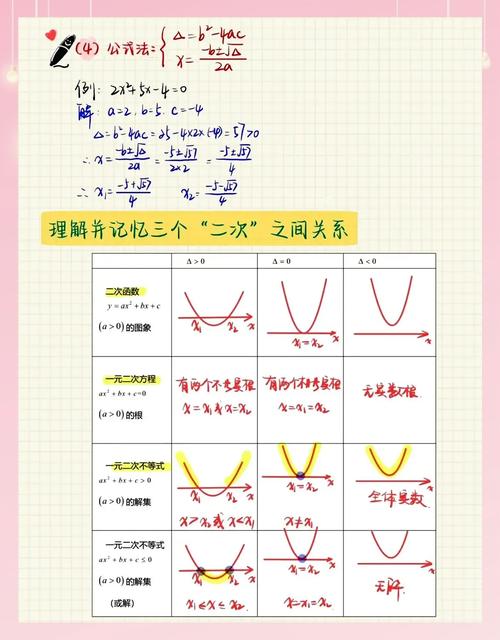 (4) 公式法: { Δ=b²-4ac
x=(-b±√Δ)/2a
例: 2x²+5x-4=0
解: a=2, b=5. c=-4
Δ=b²-4ac=25-4×2×(-4)=57>0
∴ x=(-b±√Δ)/2a=(-5±√57)/(2×2)=(-5±√57)/4
∴ x₁=(-5+√57)/4 x₂=(-5-√57)/4
理解并记忆三个“二次”之间关系
Δ>0 Δ=0 Δ<0
二次函数
y=ax²+bx+c
(a>0)的图象
x₁ x₂ x x₁=x₂ x x
一元二次方程
ax²+bx+c=0
(a>0)的根
有两个不等实根
x=x₁或x=x₂
x=x₁=x₂
无实数根.
一元二次不等式
ax²+bx+c>0
(a>0)的解集
x₁ x₂ x x₁=x₂ x x
x>x₂或x<x₁
x≠x₁
全体实数
一元二次不等式
ax²+bx+c≤0
(a>0)的解集
(或解)
x₁ x₂ x x₁=x₂ x x
x₁≤x≤x₂.
x=x₁=x₂.
无解.